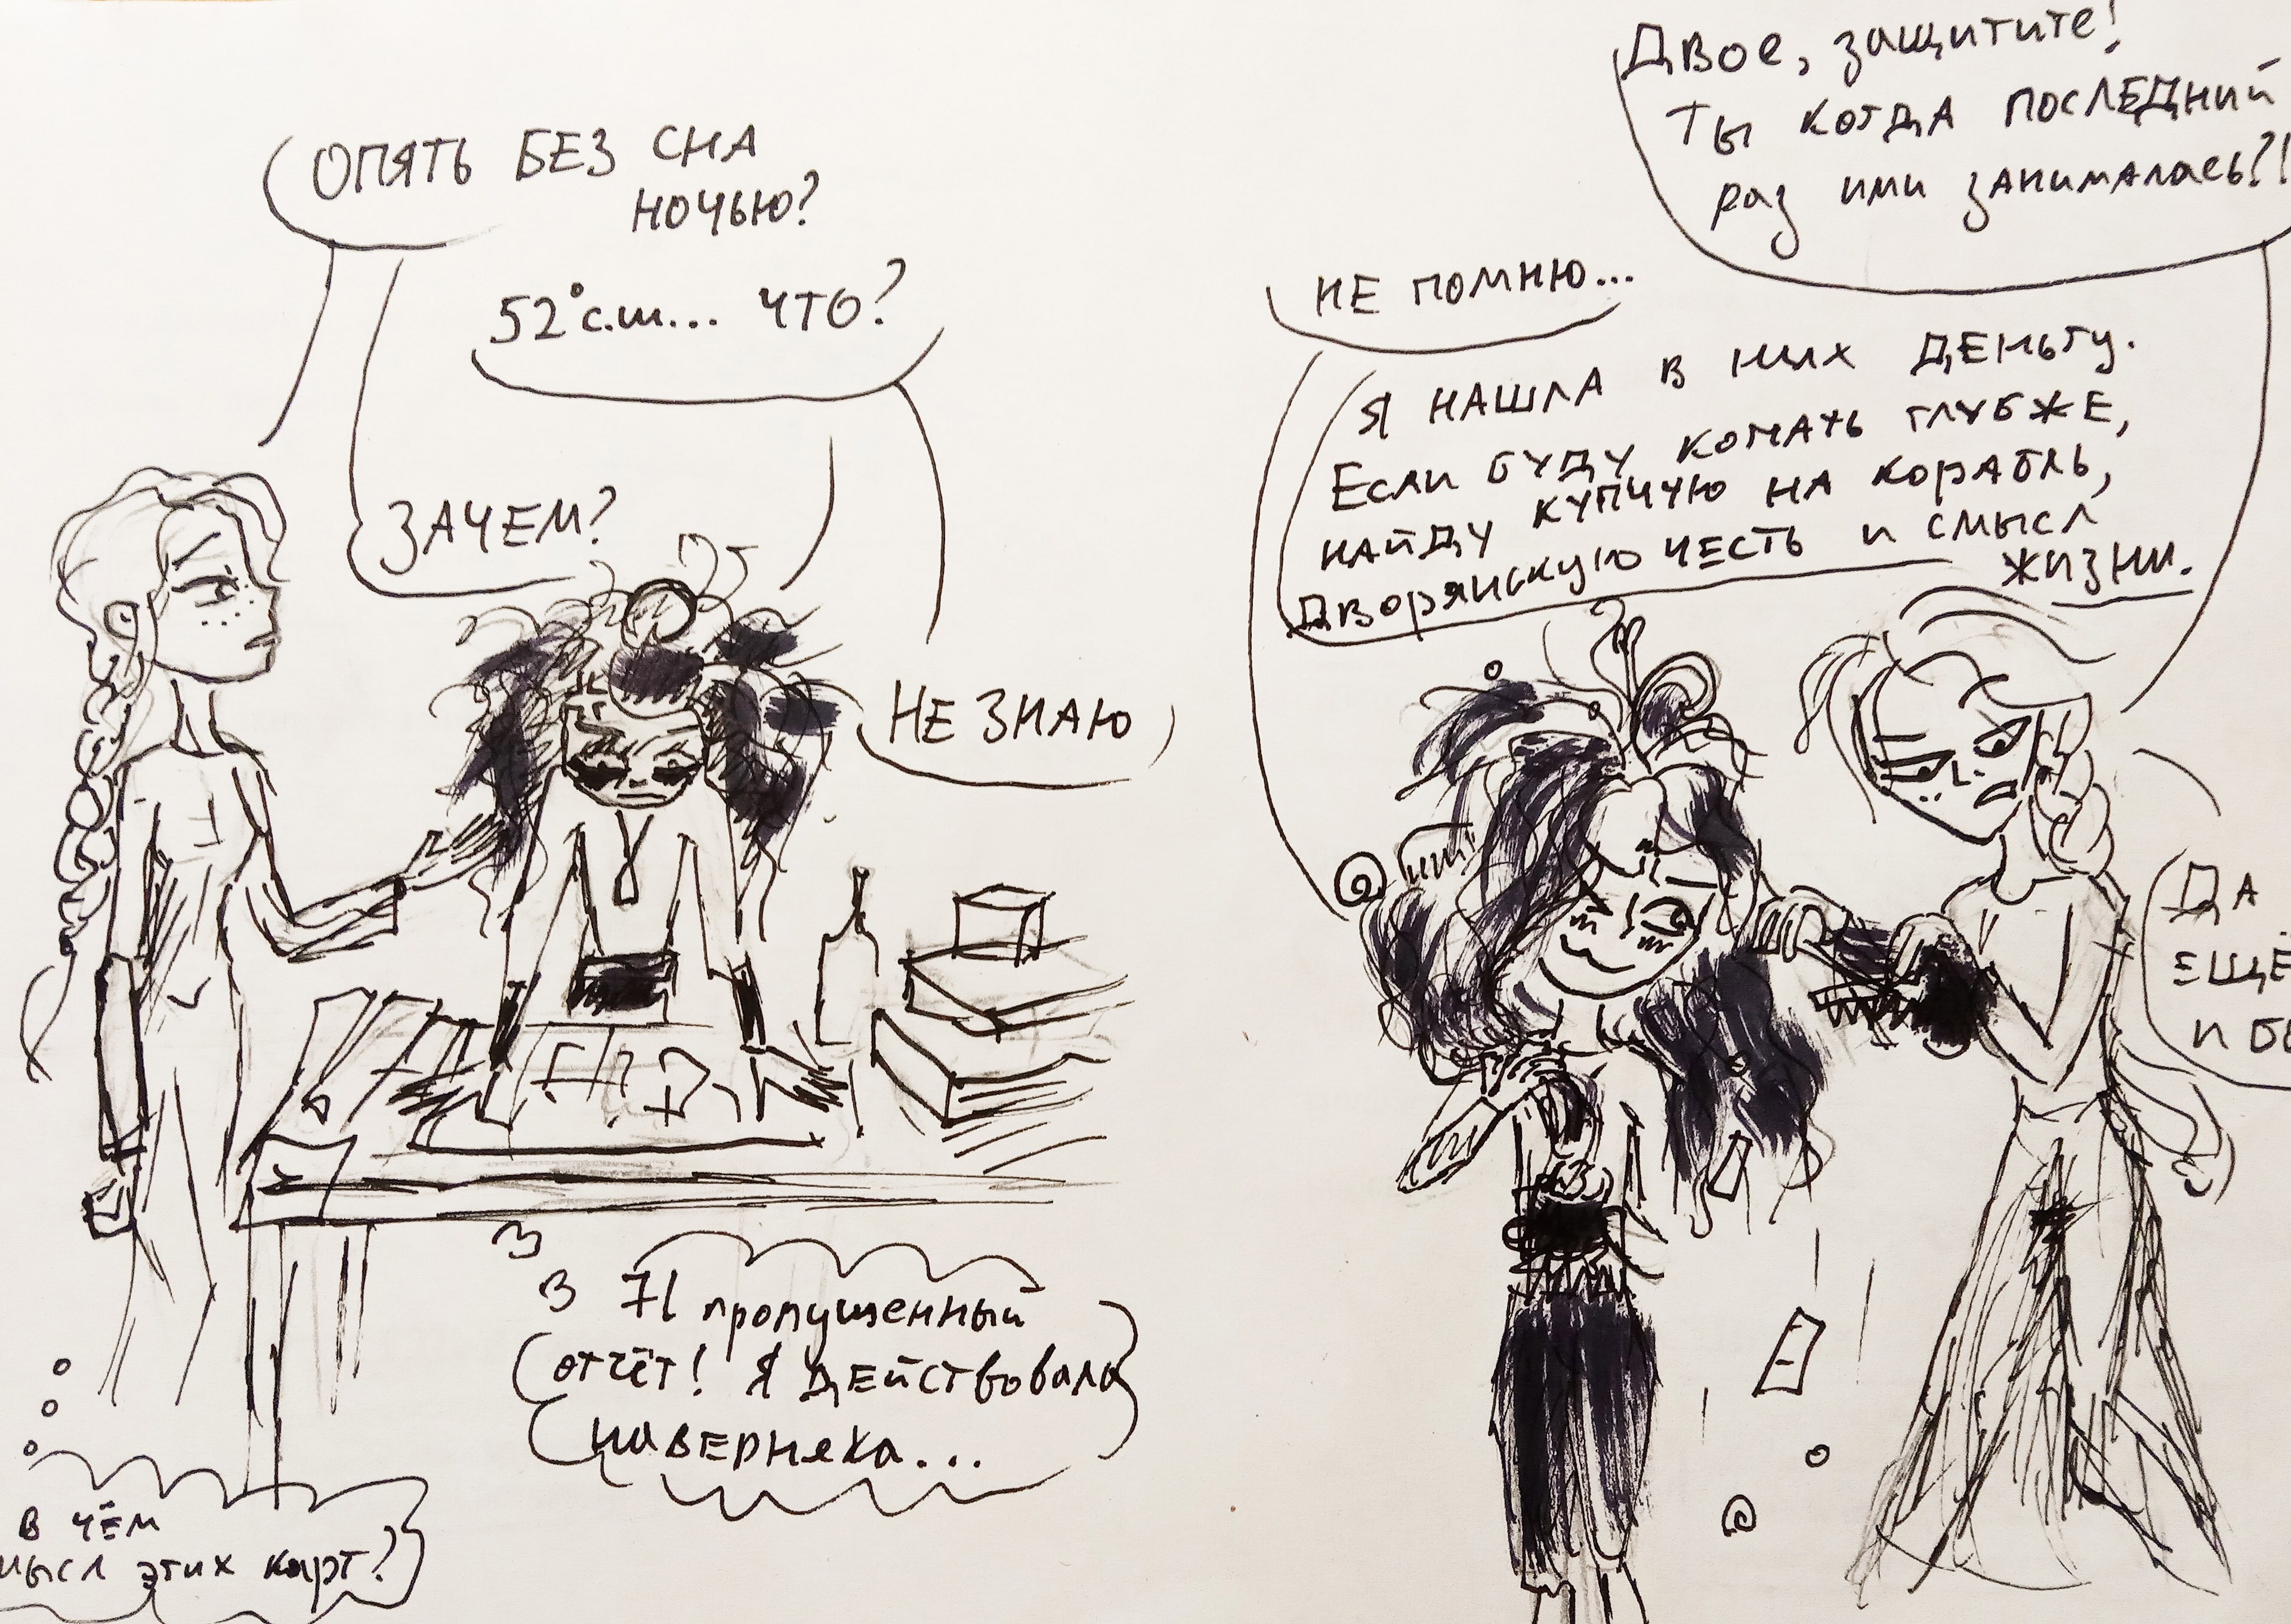 ОПЯТЬ БЕЗ СНА
НОЧЬЮ?
52° с.ш... ЧТО?
ЗАЧЕМ?
НЕ ЗНАЮ
71 пропущенный
отчёт! Я ДЕЙСТВОВАЛА
НАВЕРНЯКА...
В ЧЁМ
мысл этих карт?
Двое, защитите!
Ты когда последний
раз ими занималась?!
НЕ ПОМНЮ...
Я НАШЛА В НИХ ДЕНЬГУ.
Если буду копать глубже,
найду купчую на корабль,
Дворянскую честь и смысл
жизни.
ДА
ЕЩЁ
И